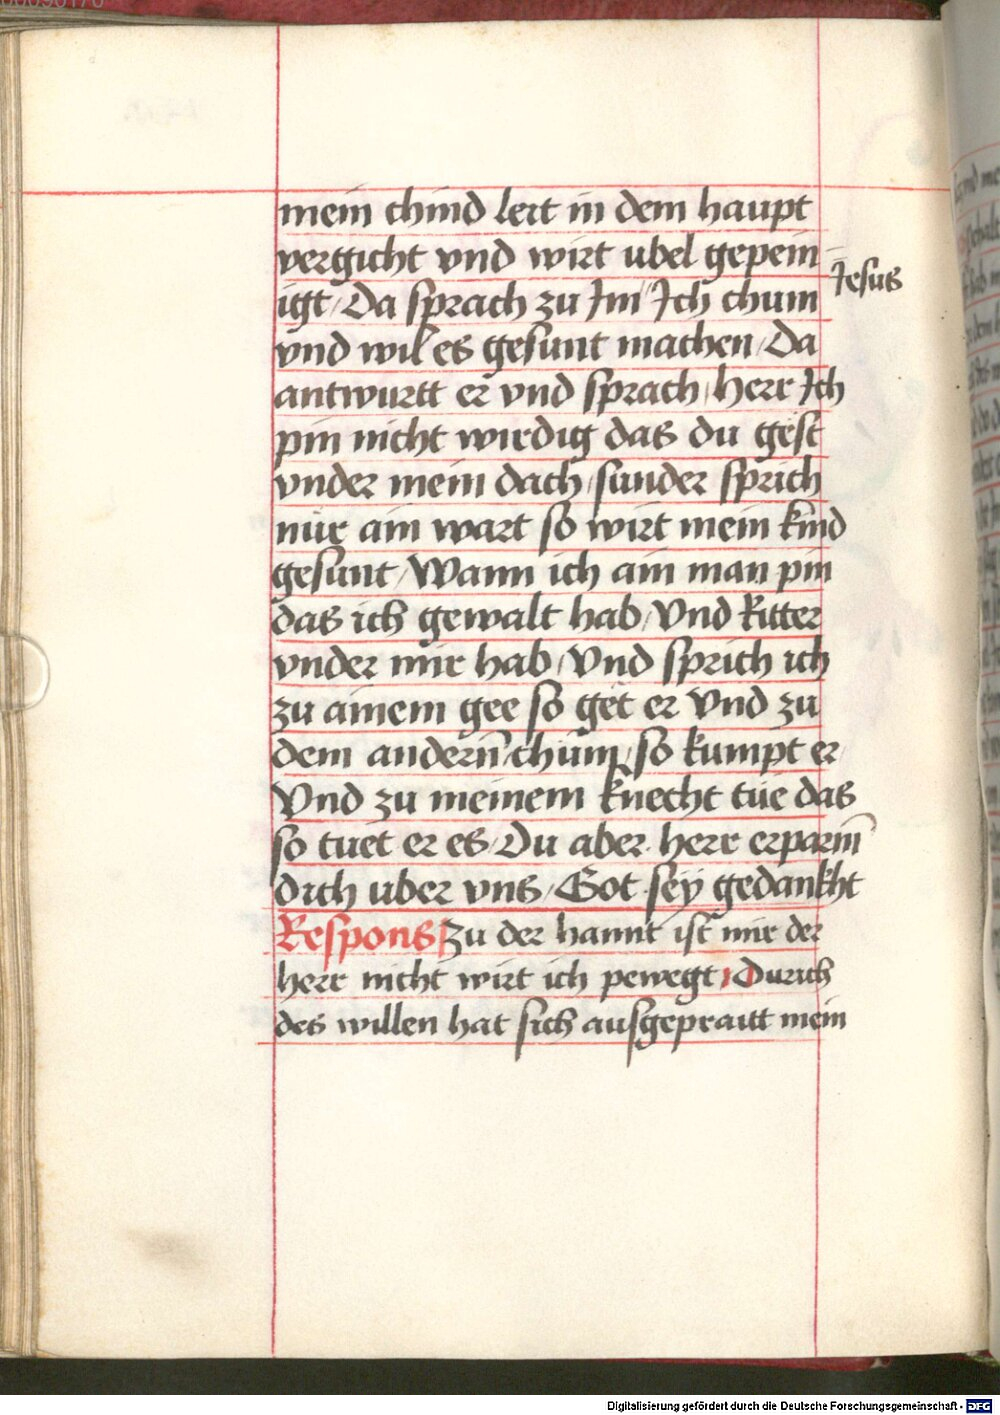 mein chind leit in dem haupt
vergicht vnd wirt ubel gepein
Jesus
igt / Da sprach zu Im / Ich chum
vnd wil es gesunt machen / Da
antwurtt er vnd sprach / herr Ich
pin nicht wirdig das du gest
vnder mein dach / sunder sprich
nur ain wart so wirt mein kind
gesunt / Wann ich ain man pin
das ich gewalt hab / Vnd Ritter
vnder mir hab / Vnd sprich ich
zu ainem gee so get er Vnd zu
dem andern̄ / chum / so kumpt er /
Vnd zu meinem knecht tue das
so tuet er es / Du aber herr erparm̄
dich uber vns / Got sey gedankht
Respons Zu der hannt ist mir der
herr nicht wirt ich pewegt / Durich
des willen hat sich ausgepraitt mein
Digitalisierung gefördert durch die Deutsche Forschungsgemeinschaft - DFG